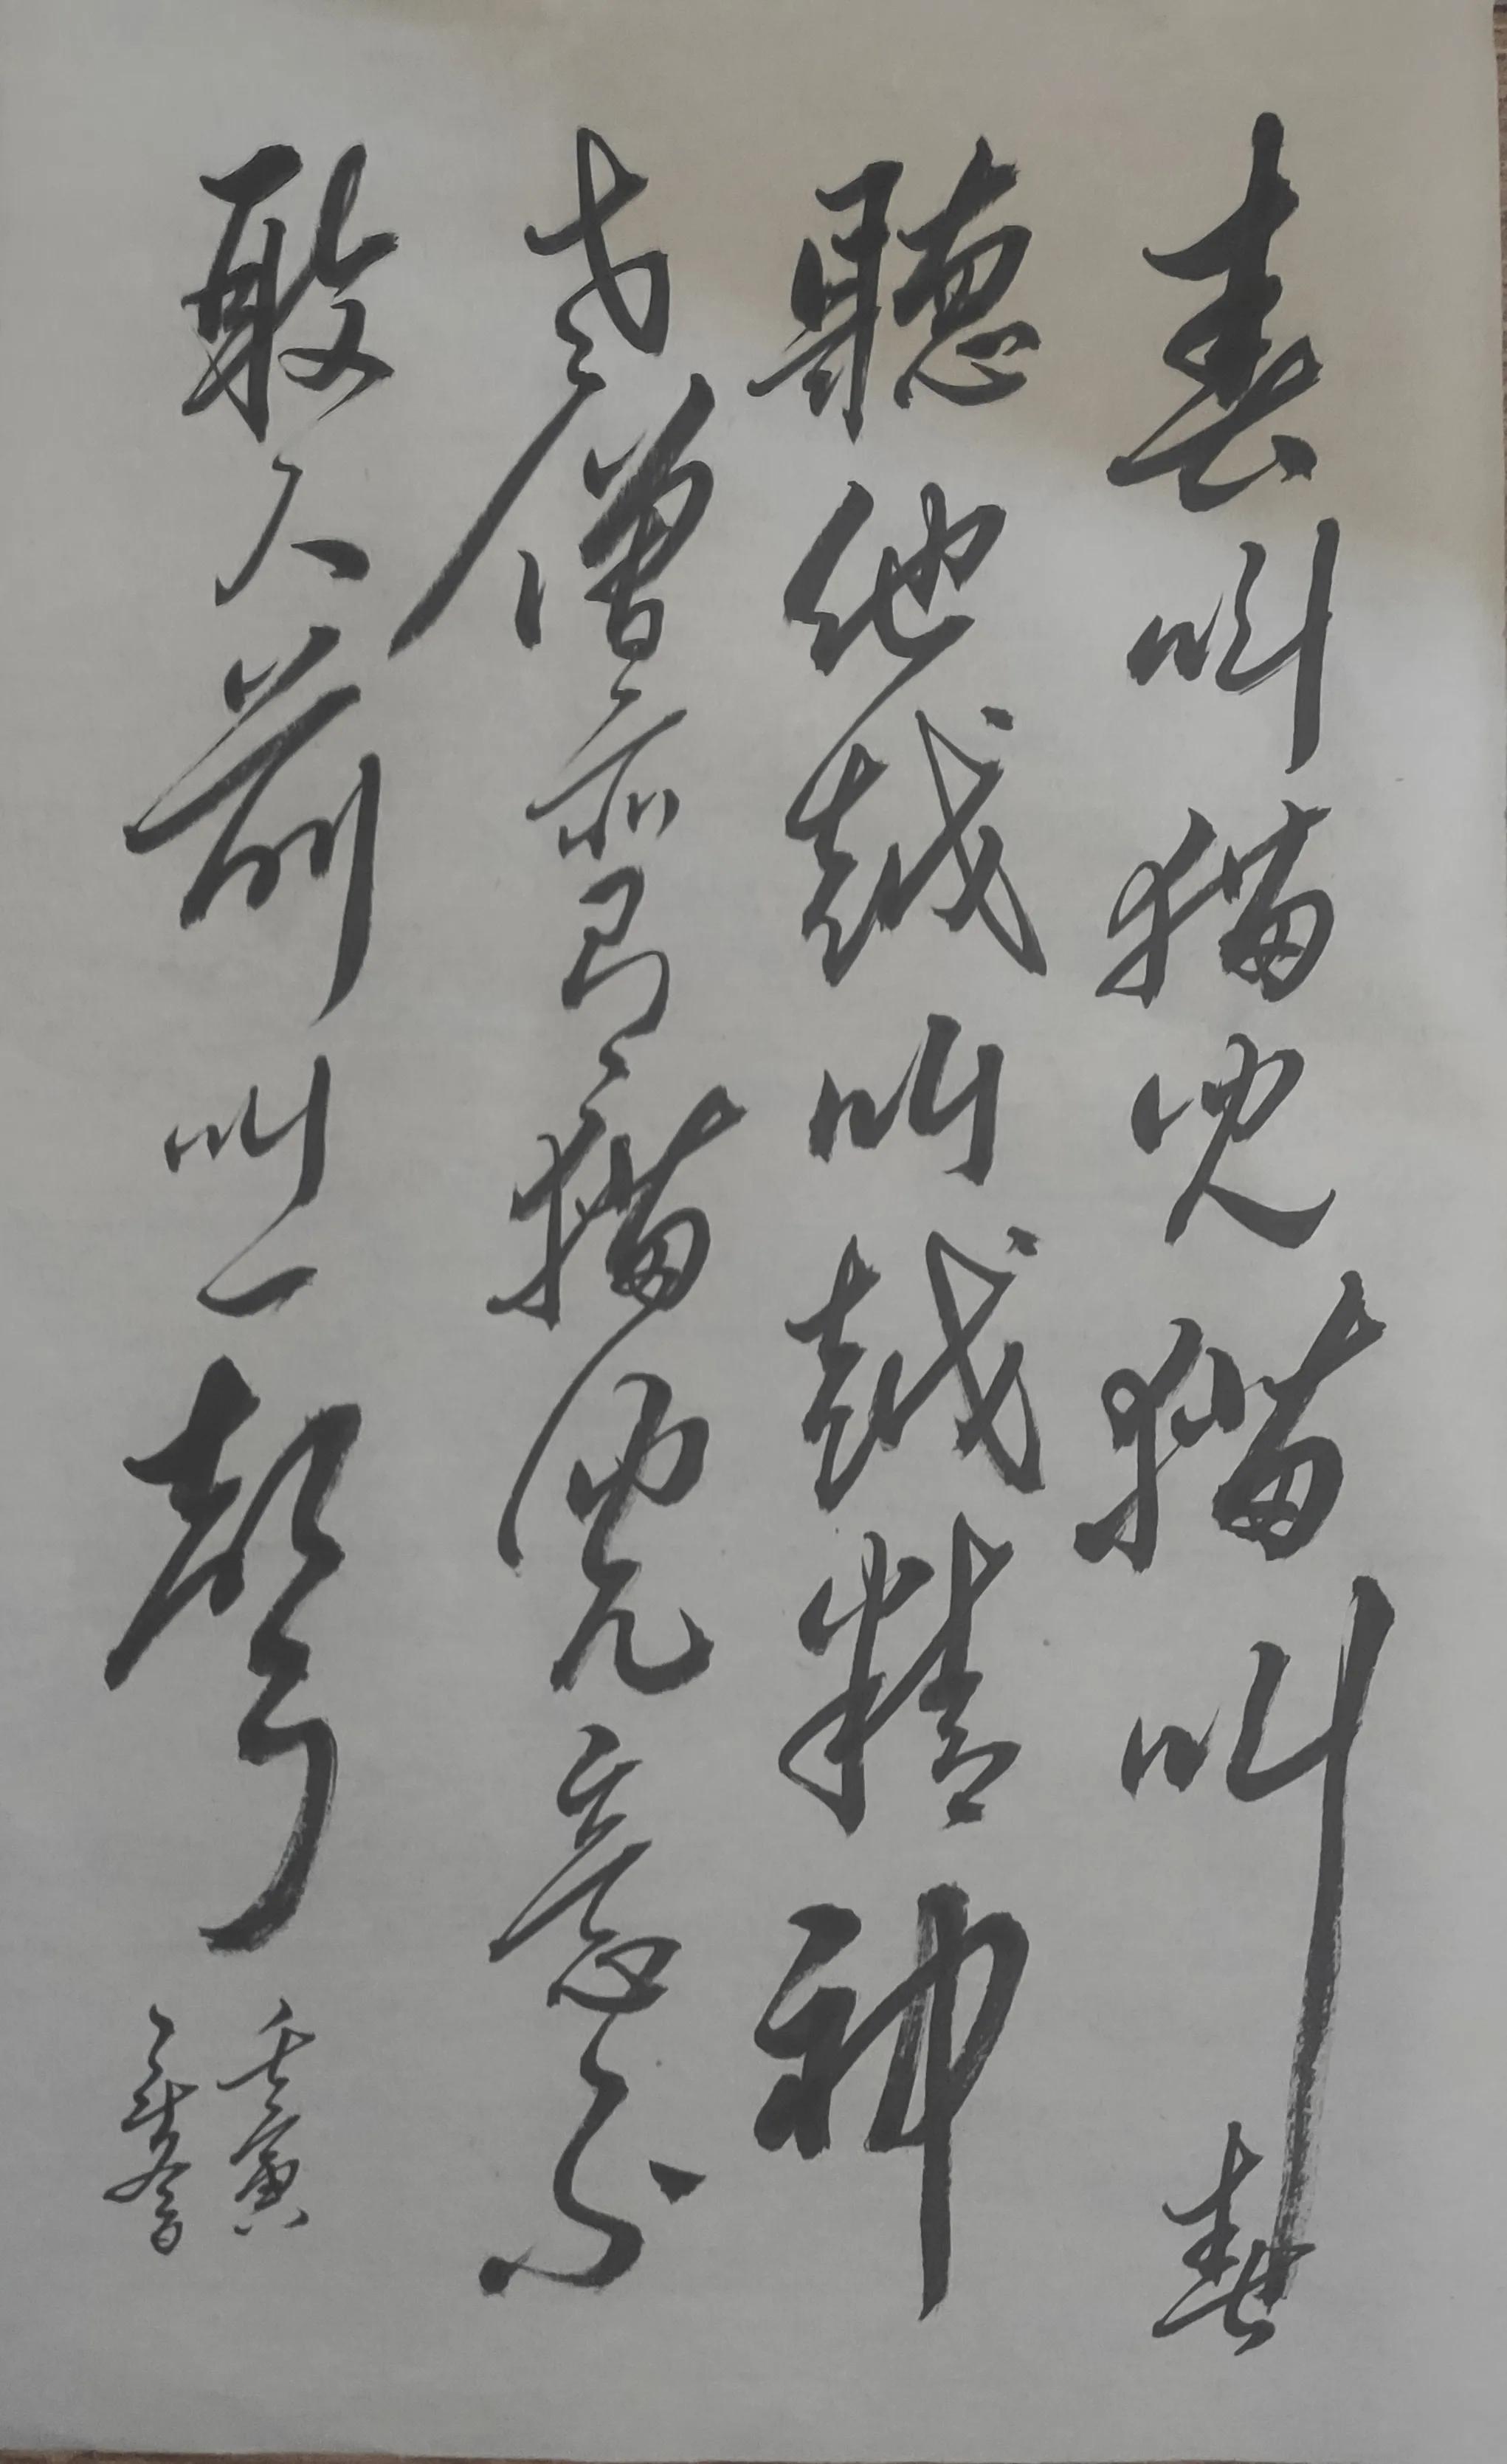 春叫猫兒猫叫春
聽他越叫越精神
老僧亦有猫兒意不
敢人前叫一聲
壬寅